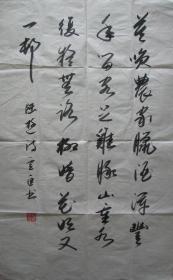 莫笑農家臘酒渾豐
年留客足雞豚山重水
復疑無路柳暗花明又
一邨
陸遊詩
書